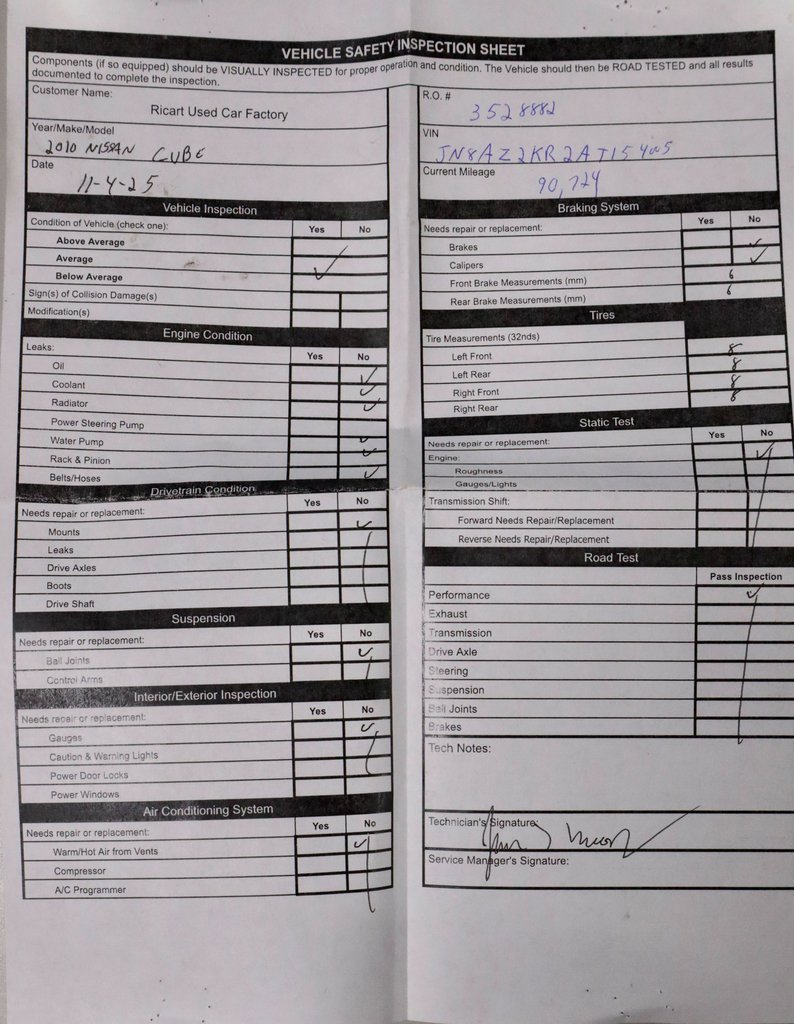 VEHICLE SAFETY INSPECTION SHEET
Components (if so equipped) should be VISUALLY INSPECTED for proper operation and condition. The Vehicle should then be ROAD TESTED and all results
documented to complete the inspection.
Customer Name:
Ricart Used Car Factory
Year/Make/Model
2010 NISSAN CUBE
Date
11-4-25
Vehicle Inspection
Condition of Vehicle (check one): Yes No
Above Average
Average ✓
Below Average
Sign(s) of Collision Damage(s)
Modification(s)
Engine Condition
Leaks: Yes No
Oil ✓
Coolant ✓
Radiator ✓
Power Steering Pump
Water Pump ✓
Rack & Pinion ✓
Belts/Hoses ✓
Drivetrain Condition
Needs repair or replacement: Yes No
Mounts ✓
Leaks
Drive Axles
Boots
Drive Shaft
Suspension
Needs repair or replacement: Yes No
Ball Joints ✓
Control Arms
Interior/Exterior Inspection
Needs repair or replacement: Yes No
Gauges ✓
Caution & Warning Lights
Power Door Locks
Power Windows
Air Conditioning System
Needs repair or replacement: Yes No
Warm/Hot Air from Vents ✓
Compressor
A/C Programmer
R.O. #
3528882
VIN
JN8AZ2KR2AT15
Current Mileage
90,724
Braking System
Needs repair or replacement: Yes No
Brakes ✓
Calipers ✓
Front Brake Measurements (mm) 6
Rear Brake Measurements (mm) 6
Tires
Tire Measurements (32nds)
Left Front 8
Left Rear 8
Right Front 8
Right Rear 8
Static Test
Needs repair or replacement: Yes No
Engine: ✓
Roughness
Gauges/Lights
Transmission Shift:
Forward Needs Repair/Replacement
Reverse Needs Repair/Replacement
Road Test
Pass Inspection
Performance ✓
Exhaust
Transmission
Drive Axle
Steering
Suspension
Ball Joints
Brakes
Tech Notes:
Technician's Signature:
Service Manager's Signature: